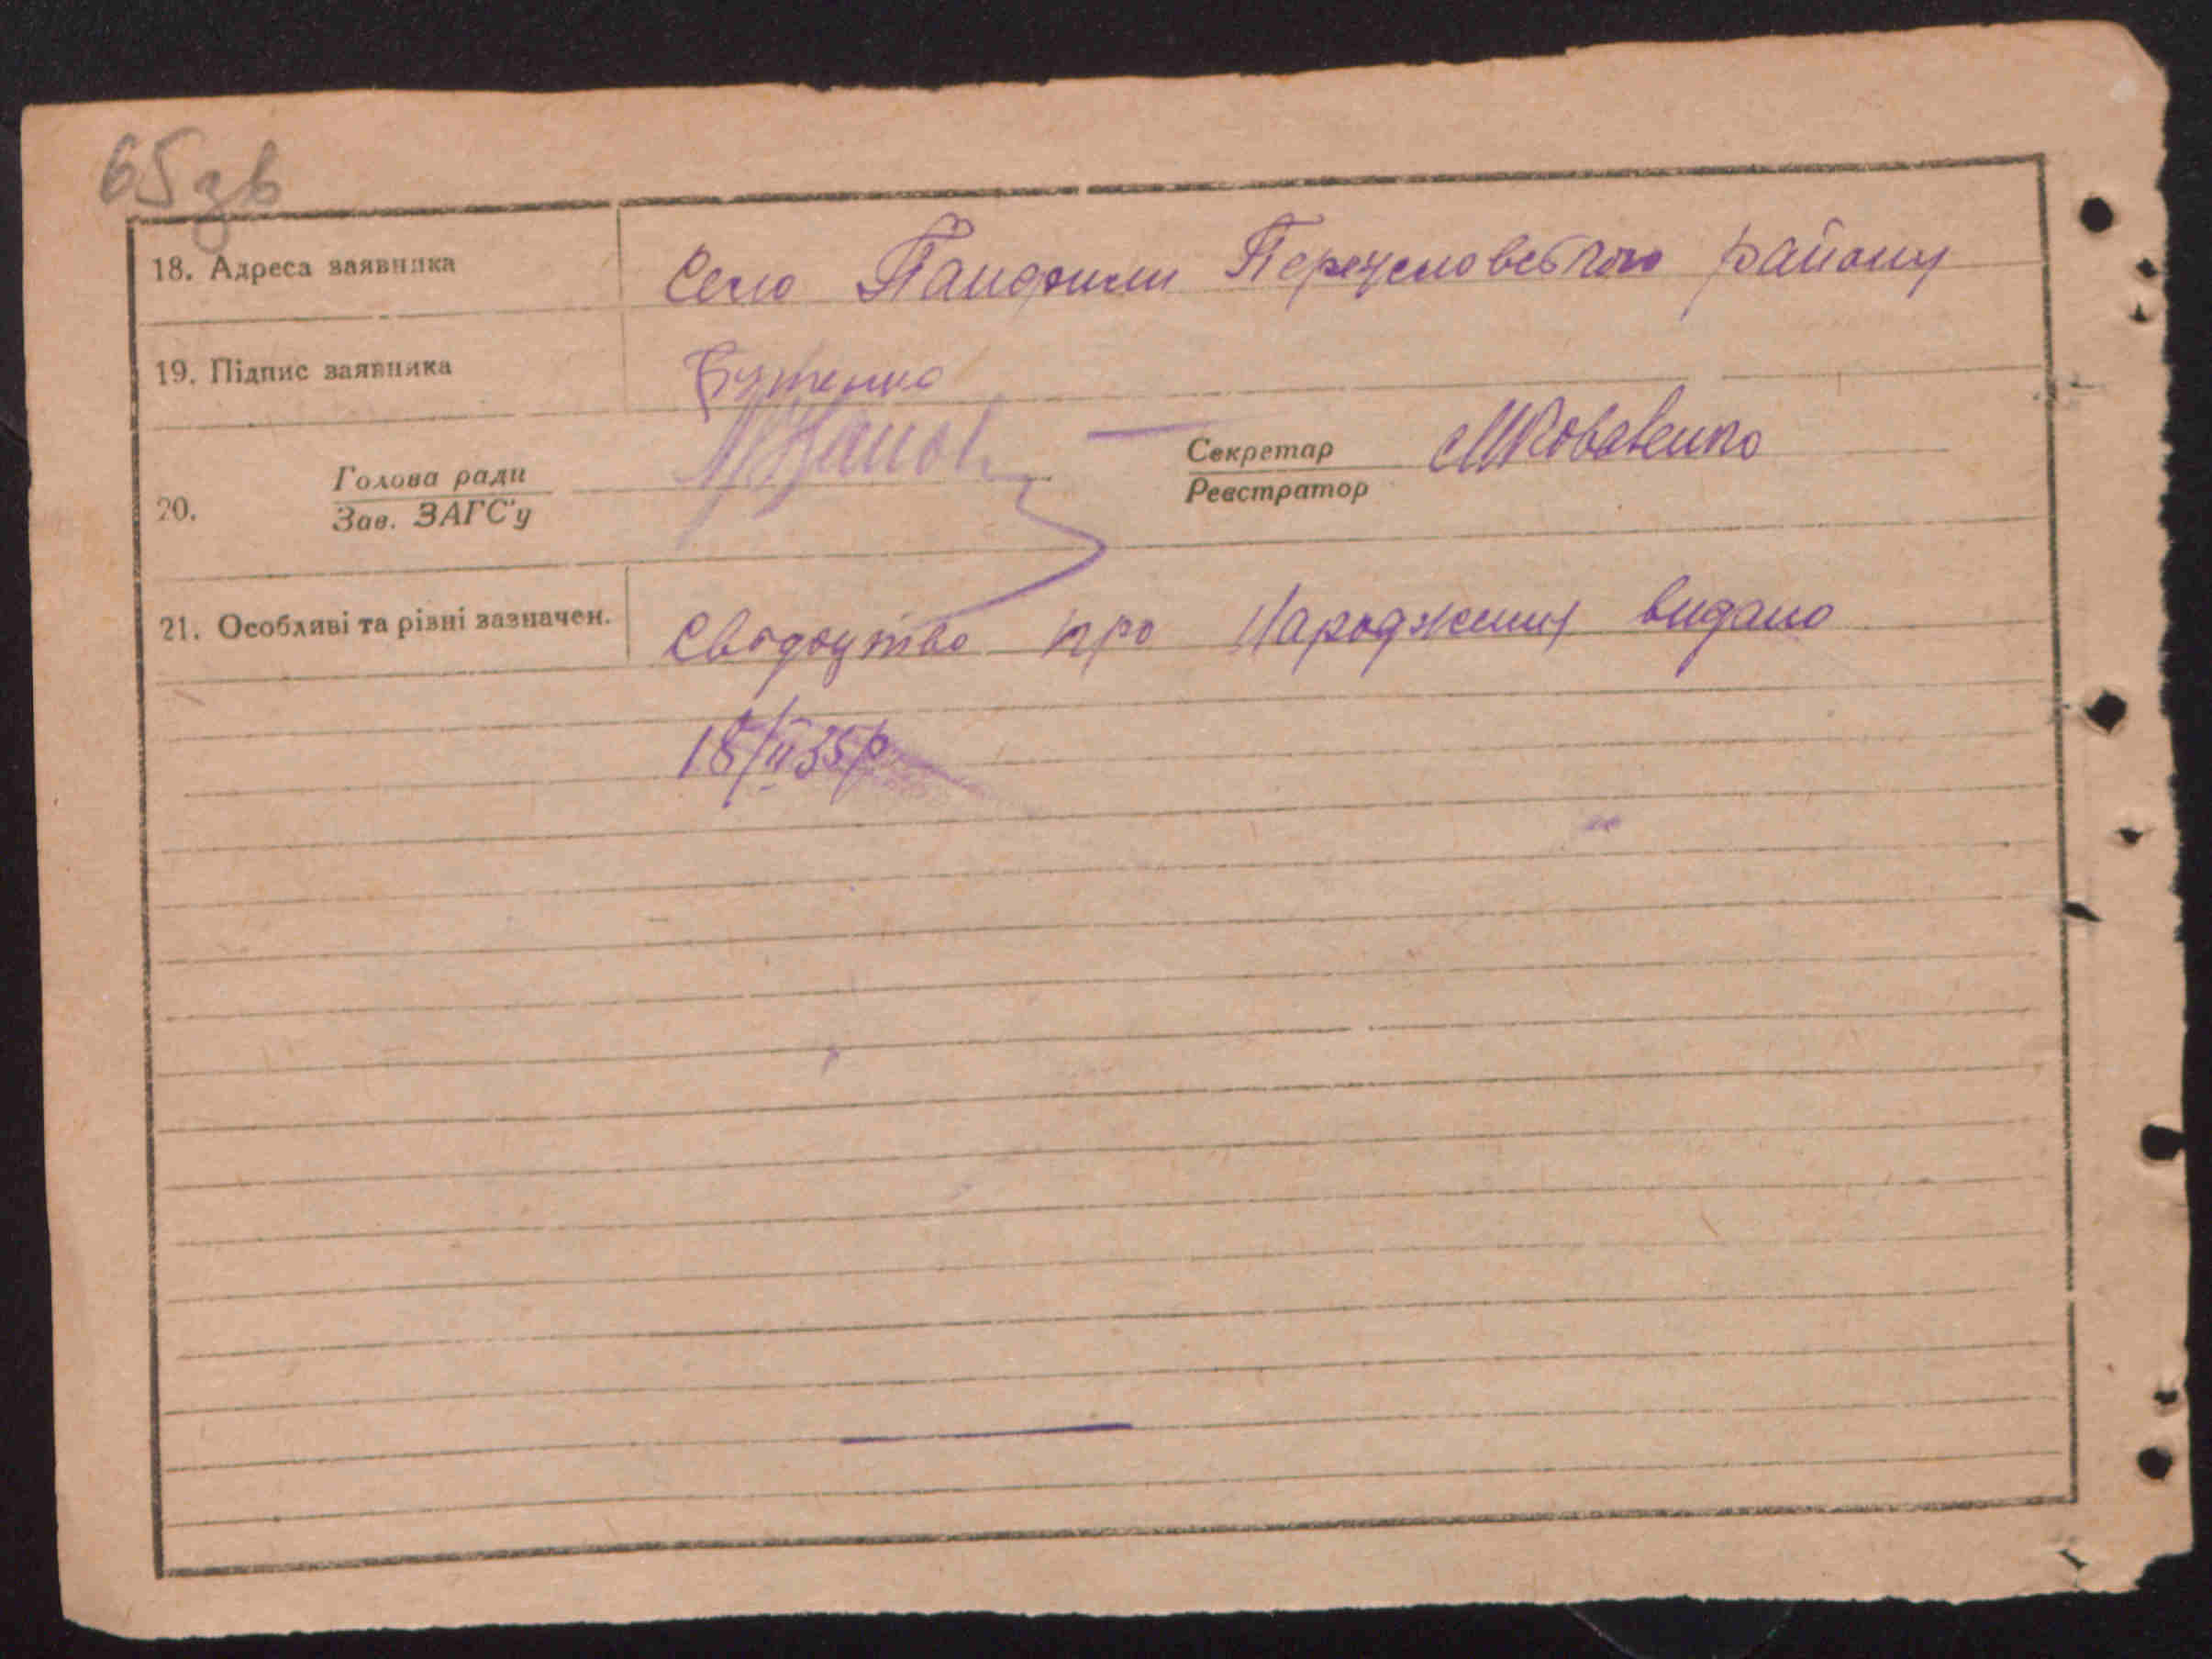 65зв
18. Адреса заявника Село Панфили Переусловського району
19. Підпис заявника Бутенко
20. Голова ради
Зав. ЗАГС'у
Секретар
Реєстратор
МКоваленко
21. Особливі та різні зазначен. Свідоцтво про Народження видано
18/II 35р